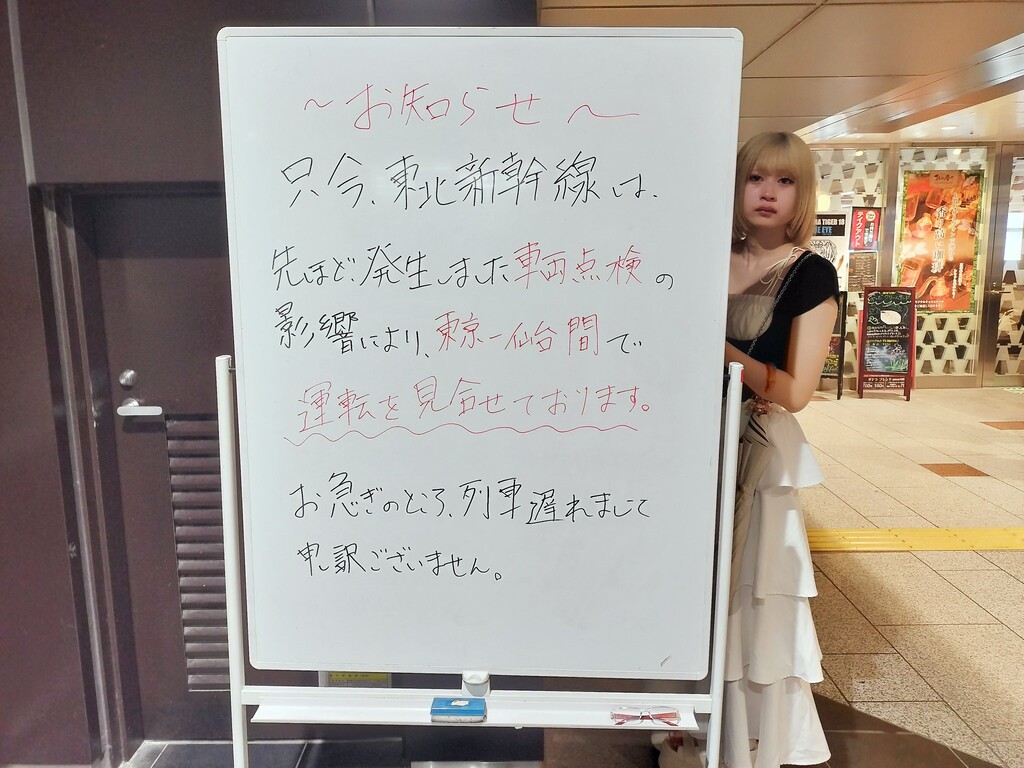 ～お知らせ～
只今、東北新幹線は、
先ほど、発生しました車両点検の
影響により、東京－仙台間で
運転を見合せております。
お急ぎのところ、列車遅れまして
申し訳ございません。
テイクアウト